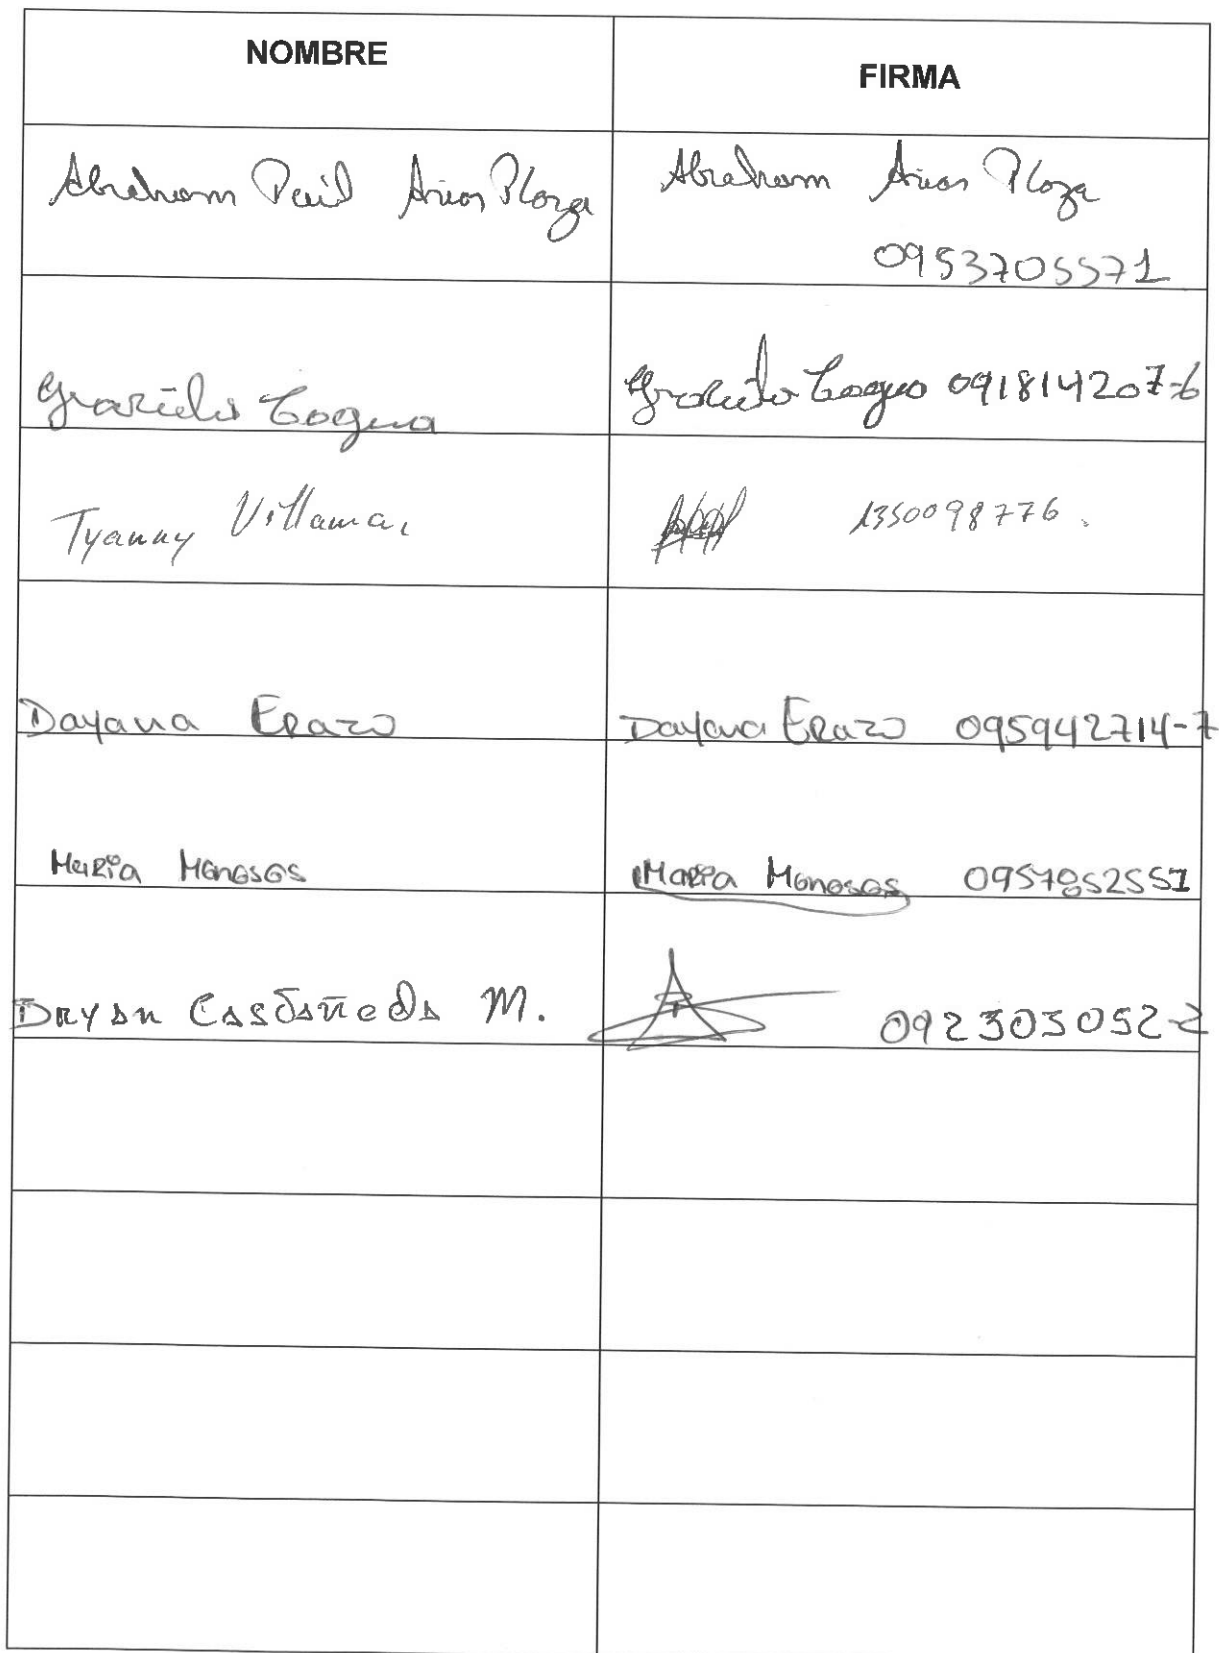 NOMBRE
FIRMA
Abraham Paúl Arias Plaza
Abraham Arias Plaza
0953705571
Graciela Cogua
Graciela Cogua 091814207-6
Tyanny Villamar
1350098776.
Dayana Erazo
Dayana Erazo 095942714-7
María
María 0957852551
Bryan Castañeda M.
092303052-2